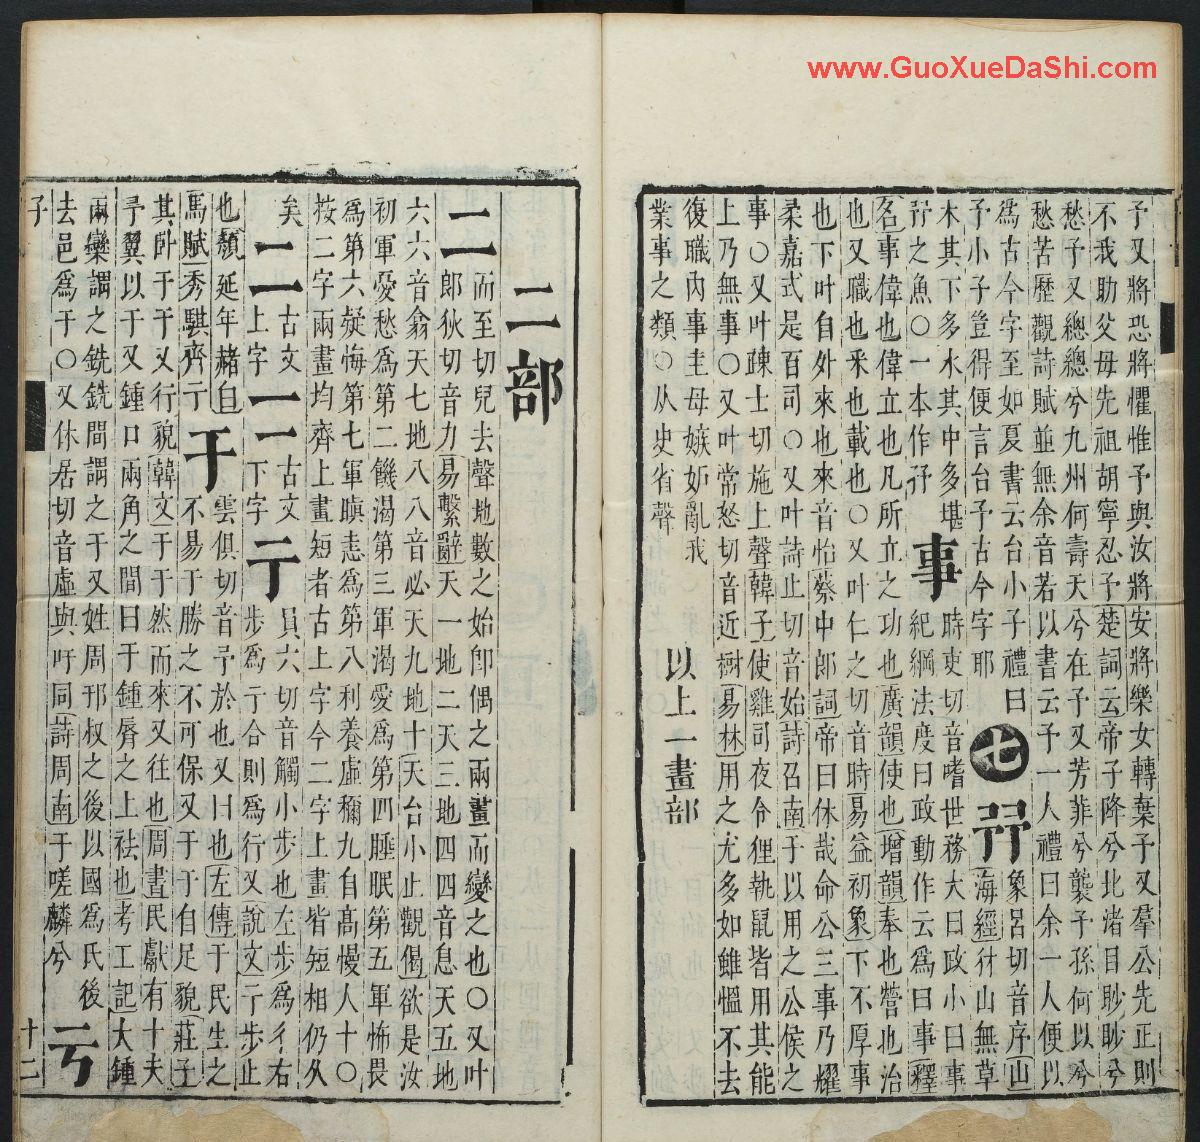 www.GuoXueDaShi.com
予又將恐將懼惟予與汝將安將樂女轉棄予又羣公先正則
不我助父母先祖胡寧忍予楚詞云帝子降兮北渚目眇眇兮
愁予又總總兮九州何壽夭兮在予又芳菲兮襲予孫何以兮
愁苦歷觀詩賦並無余音若以書云予一人禮曰余一人便以
爲古今字至如夏書云台小子禮曰
予小子豈得便言台予古今字耶
七
𠄔
象呂切音序山
海經䓷山無草
木其下多水其中多堪
𠄔之魚○一本作𥝢
事
時吏切音嗜世務大曰政小曰事
紀綱法度曰政動作云爲曰事釋
名事偉也偉立也凡所立之功也廣韻使也增韻奉也營也治
也又職也采也載也○又叶仁之切音時易益初象下不厚事
也下叶自外來也來音怡蔡中郎詞帝曰休哉命公三事乃耀
柔嘉式是百司○又叶詩止切音始詩召南于以用之公侯之
事○又叶疎士切施上聲韓子使雞司夜令狸執鼠皆用其能
上乃無事○又叶常怒切音近樹易林用之尤多如雖慍不去
復職內事圭母嫉妒亂我
業事之類○从史省聲
以上一畫部
二部
二
而至切兒去聲地數之始卽偶之兩畫而變之也○又叶
郎狄切音力易繫辭天一地二天三地四四音息天五地
六六音翕天七地八八音必天九地十天台小止觀偈欲是汝
初軍憂愁爲第二饑渴第三軍渴愛爲第四睡眠第五軍怖畏
爲第六疑悔第七軍瞋恚爲第八利養虛稱九自高慢人十○
按二字兩畫均齊上畫短者古上字今二字上畫皆短相仍久
矣
二
古文
上字
二
古文
下字
亍
員六切音觸小步也左步爲彳右
步爲亍合則爲行又說文亍步止
也顏延年赭白
馬賦秀騏齊亍
于
雲俱切音雩於也又曰也左傳于民生之
不易于勝之不可保又于于自足貌莊子
其卧于于又行貌韓文于于然而來又往也周書民獻有十夫
予翼以于又鍾口兩角之間曰于鍾脣之上袪也考工記大鍾
兩欒謂之銑銑間謂之于又姓周邘叔之後以國爲氏後
去邑爲于○又休居切音虛與吁同詩周南于嗟麟兮
亐
子
十二